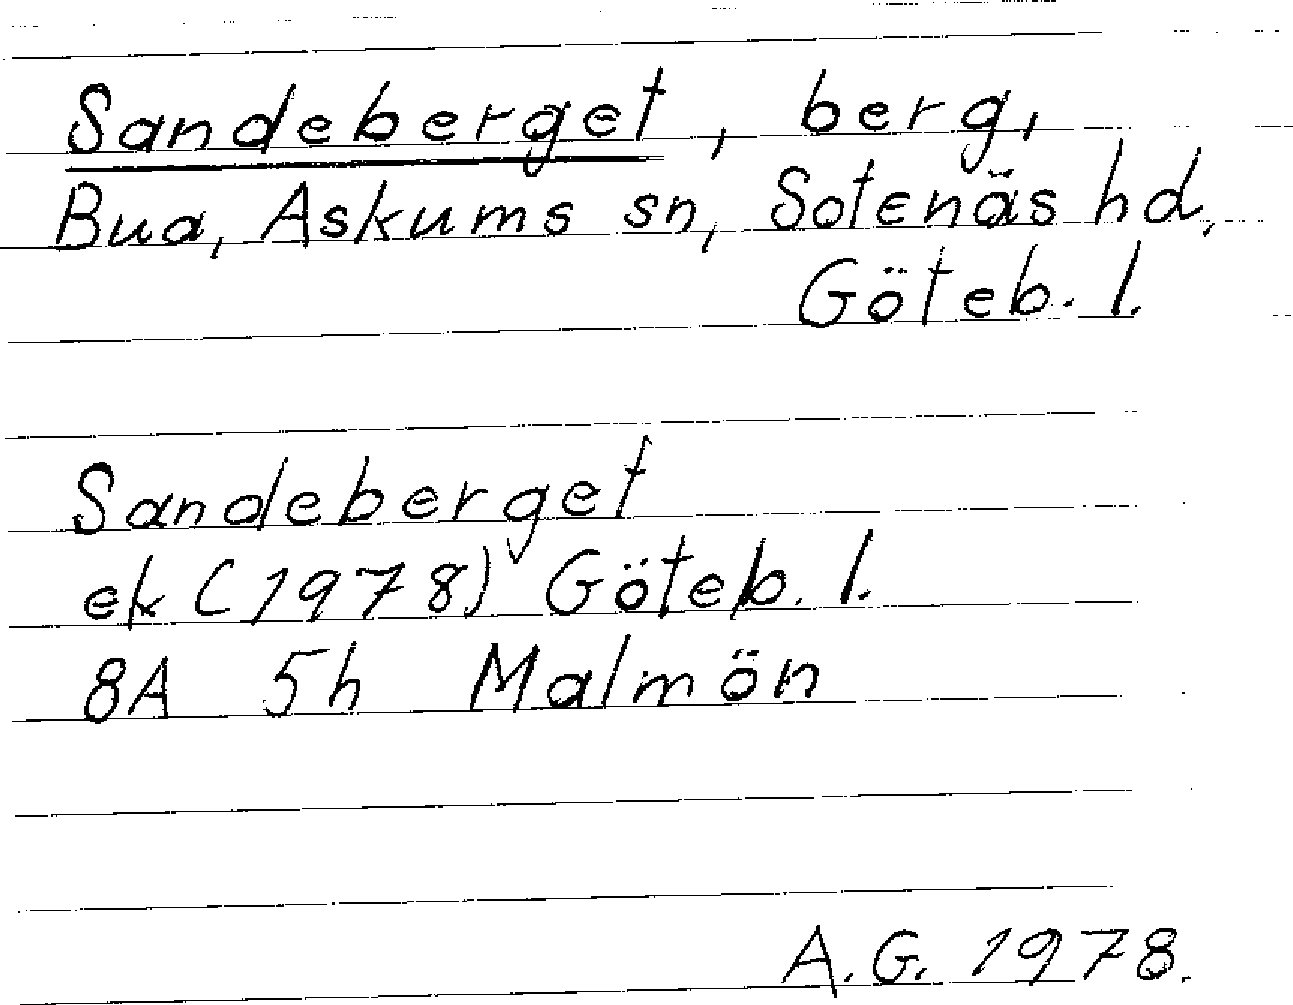 Sandeberget, berg,
Bua, Askums sn, Sotenäs hd,
Göteb. l.
Sandeberget
ek (1978) Göteb. l.
8A 5h Malmön
A.G. 1978.